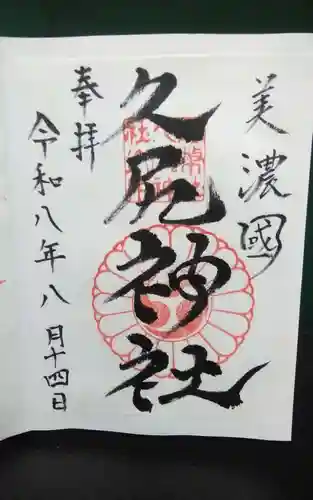 美濃國
久尻神社
奉拝
令和八年八月十四日